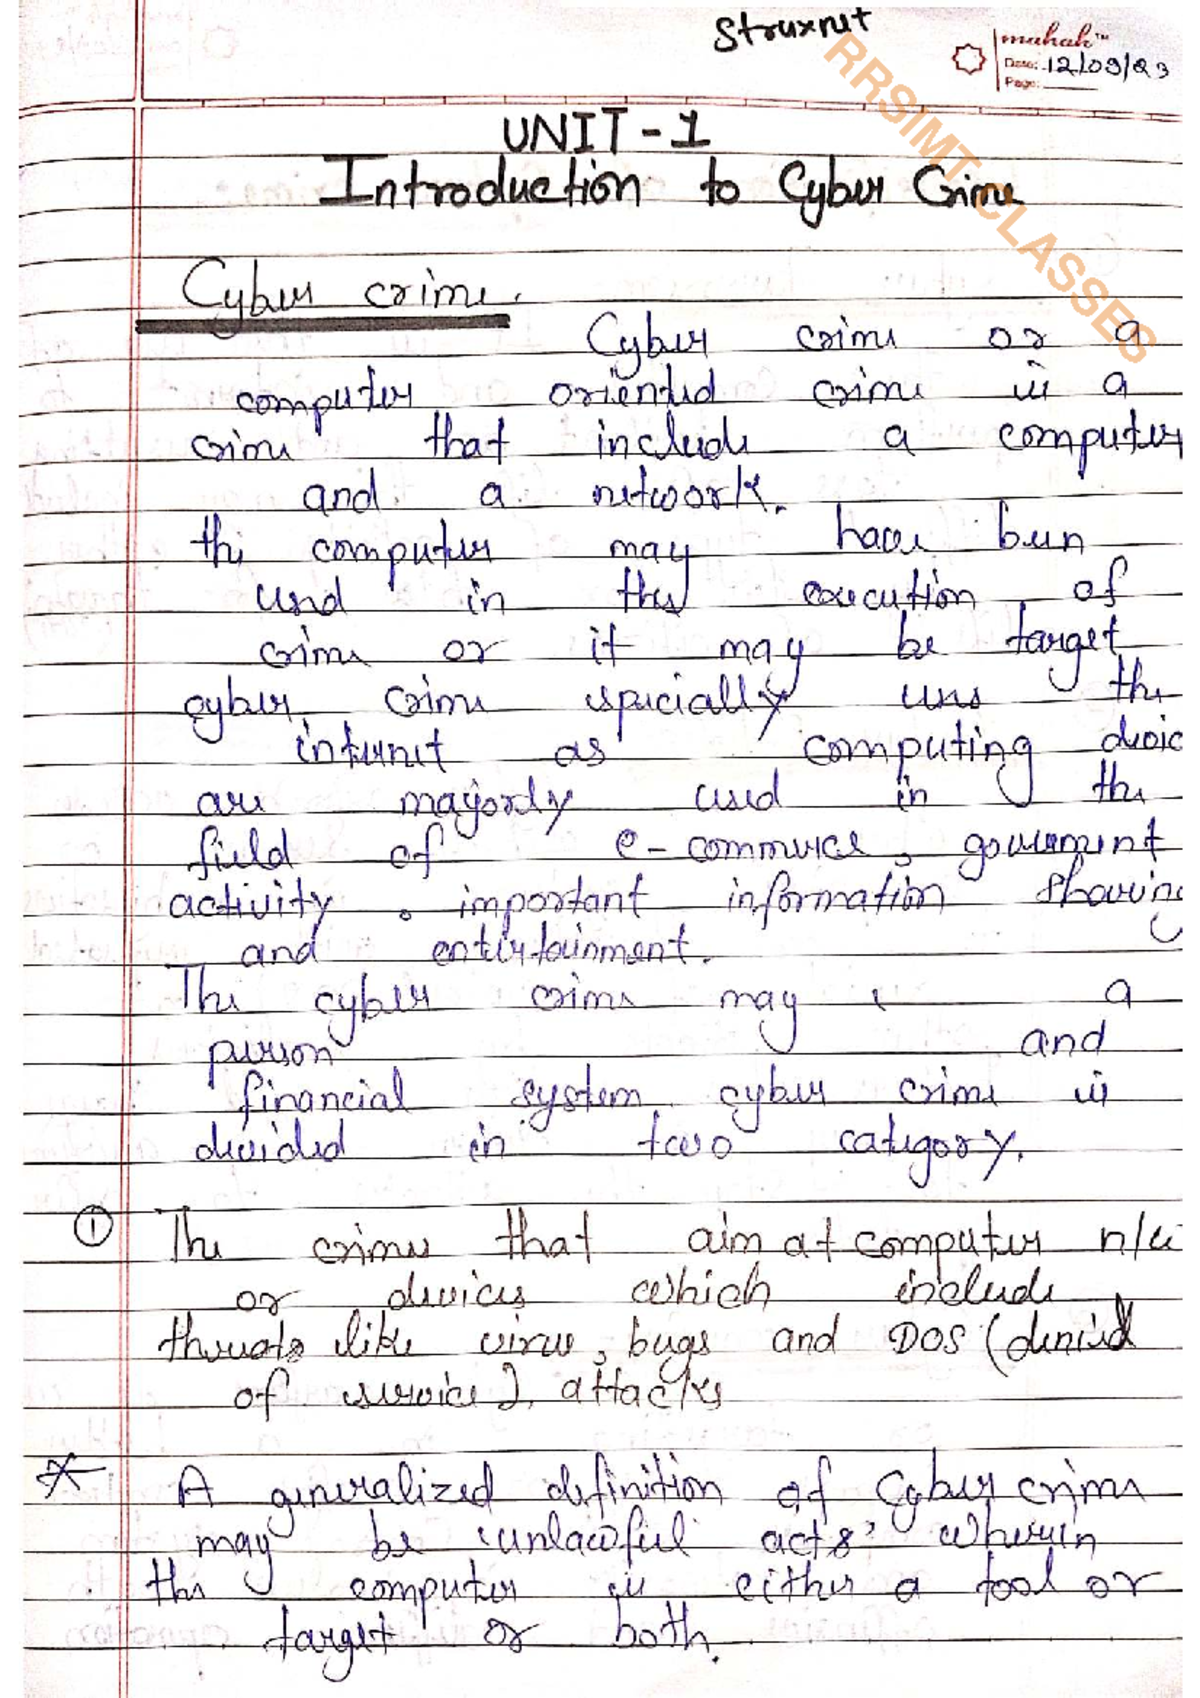 Struxnet
mahak™
Date: 12/09/23
Page:
RRSIMT CLASSES
UNIT - 1
Introduction to Cyber Crime
Cyber crime.
Cyber crime or a
computer oriented crime is a
crime that include a computer
and a network.
the computer may have been
used in the execution of
crime or it may be target
cyber crime specially uses the
internet as computing devic
are majorly used in the
field of e-commerce, government
activity, important information sharing
and entertainment.
The cyber crime may a
person and
financial system. cyber crime is
divided in two category.
① The crimes that aim at computer n/w
or devices which include
threats like virus, bugs and DOS (denied
of service). attacks
* A generalized definition of Cyber crime
may be 'unlawful acts' wherein
the computer is either a tool or
target or both.